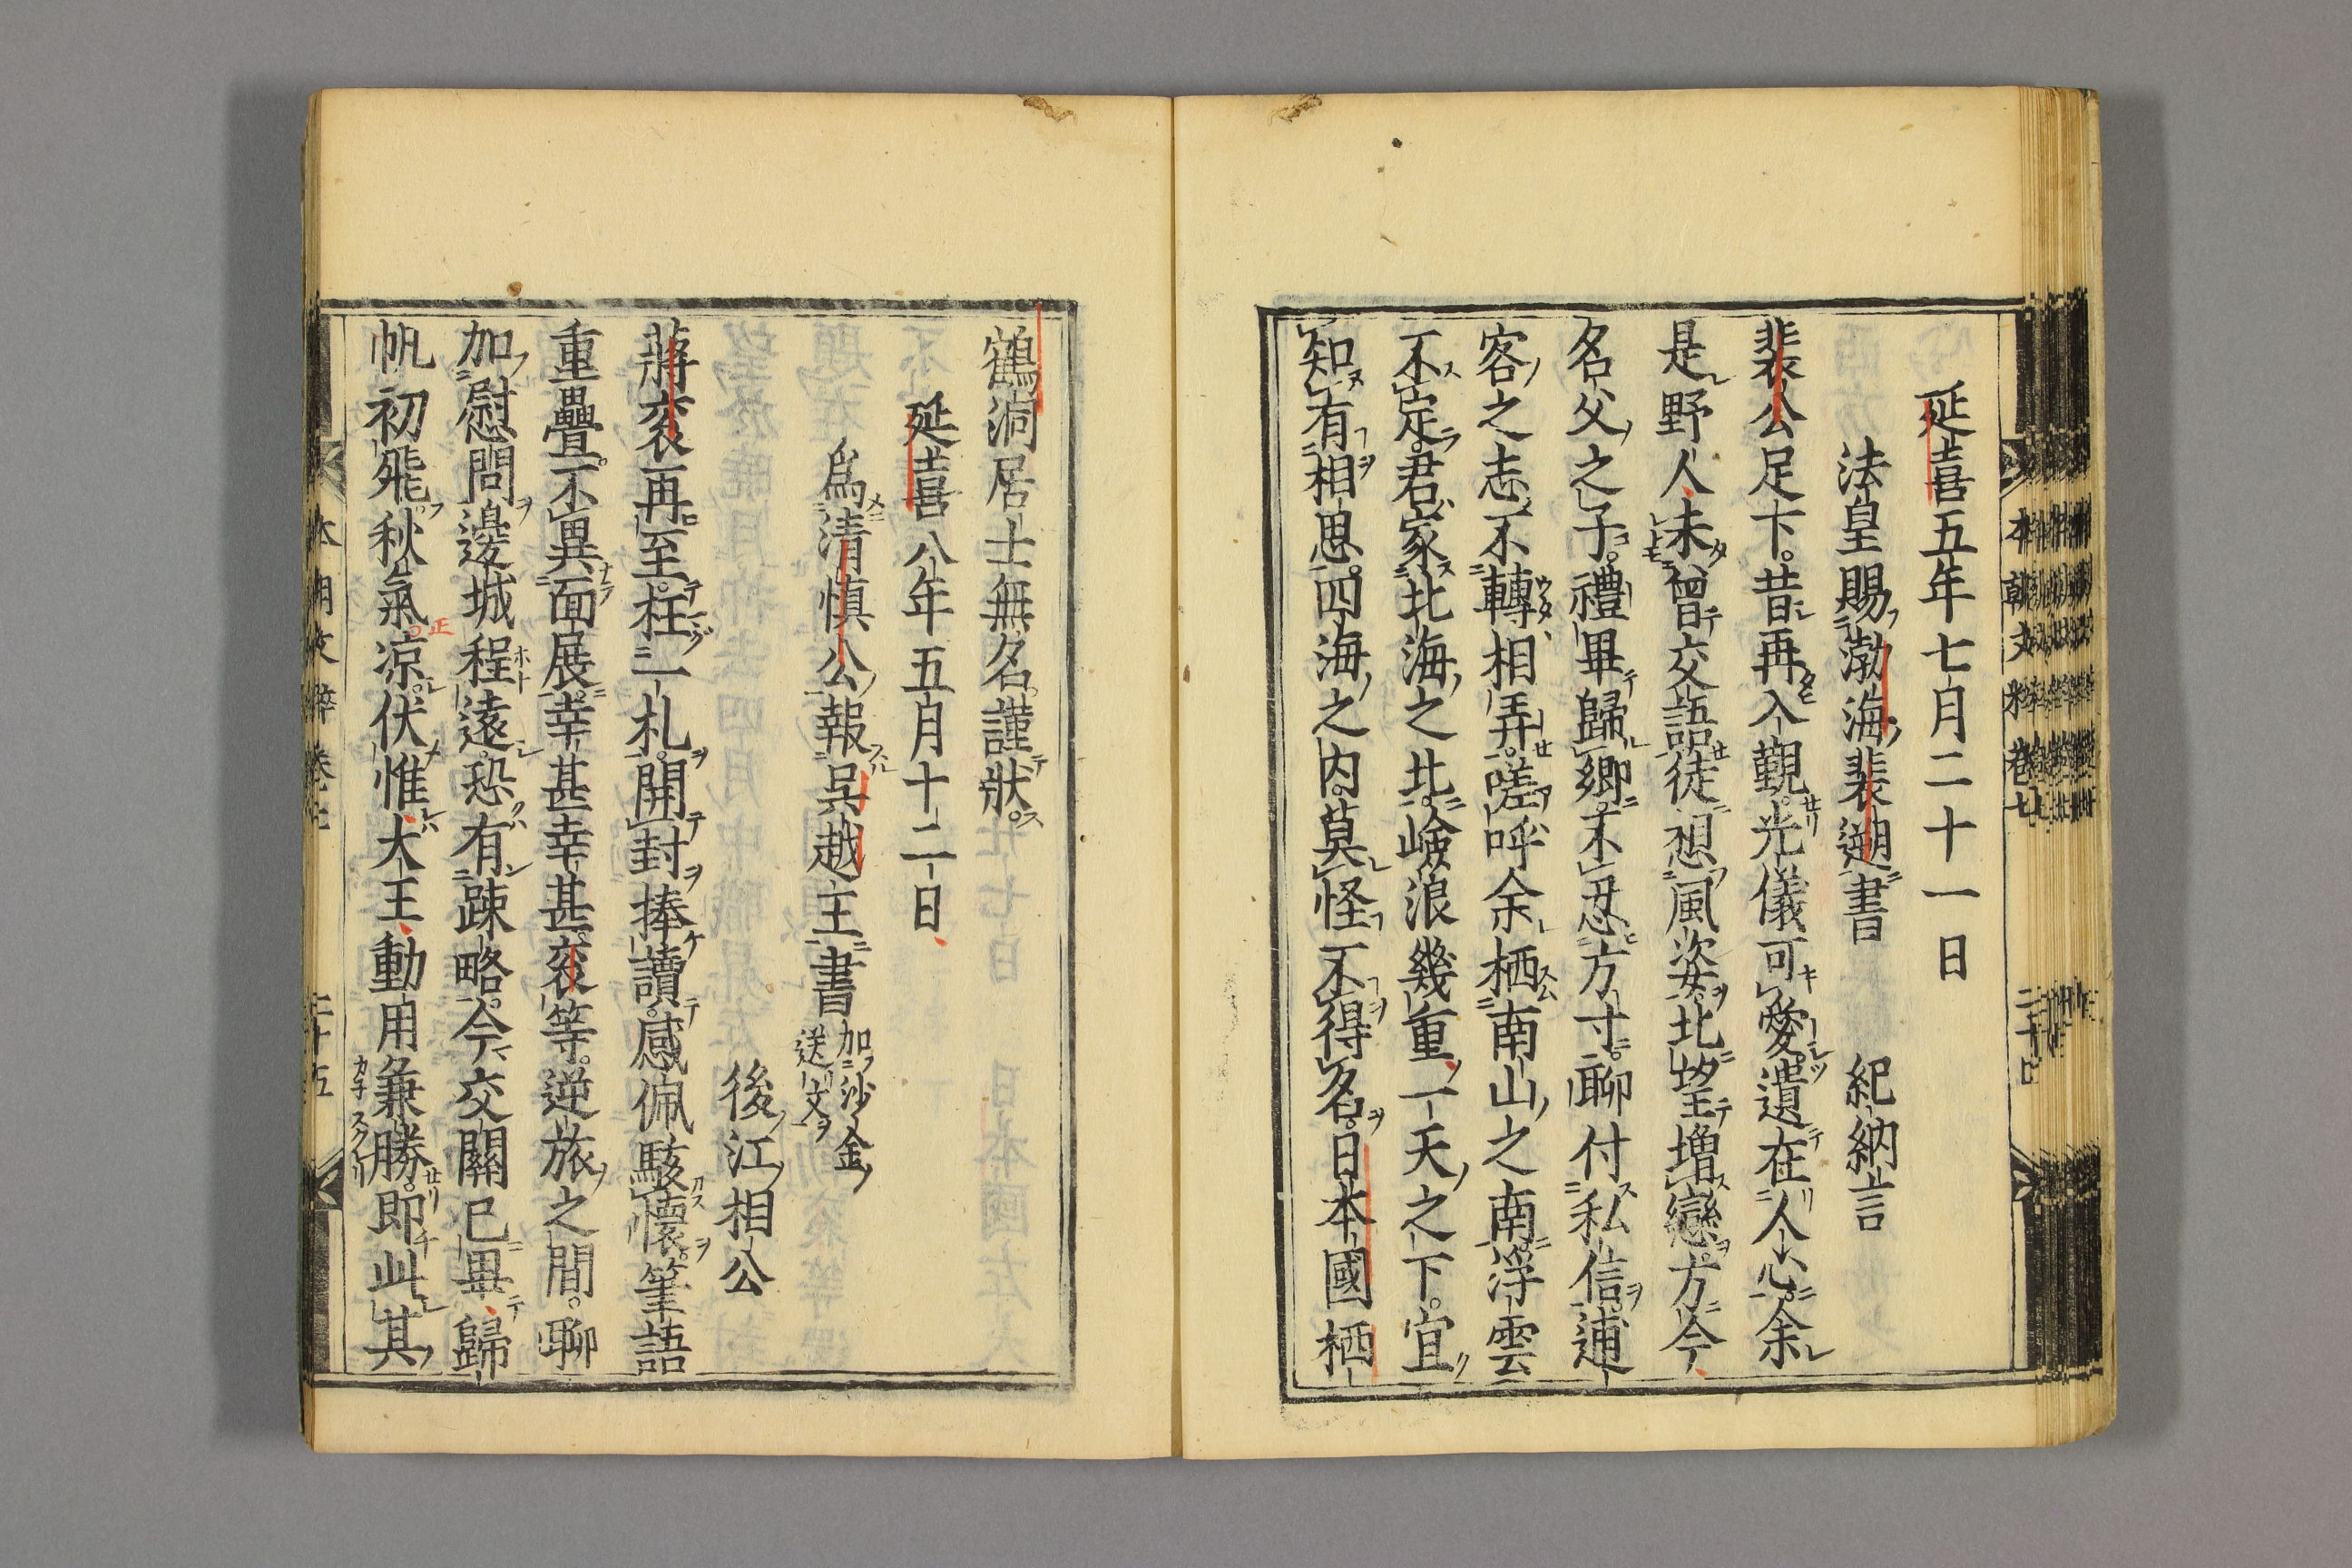 延喜五年七月二十一日
法皇賜渤海裴遡書　紀納言
裴公足下。昔再入覲。光儀可愛。遺在人心。余
是野人。未曾交語。徒想風姿。北望增戀。方今
名父之子。禮畢歸鄉。不忍方寸。聊付私信。逋
客之志。不轉相弄。嗟呼余栖南山之南。浮雲
不定。君家北海之北。嶮浪幾重。一天之下。宜
知有相思。四海之内。莫怪不得名。日本國栖
鶴洞居士無名。謹狀。
延喜八年五月十二日
爲清慎公報吳越王書 加沙金送文
後江相公
蔣衮再至。枉一札。開封捧讀。感佩駭懷。筆語
重疊。不異面展。幸甚幸甚。衮等。逆旅之間。聊
加慰問。邊城程遠。恐有踈略。今交關已畢。歸
帆初飛。秋氣凉。伏惟大王。動用兼勝。即此其
本朝文粹卷七